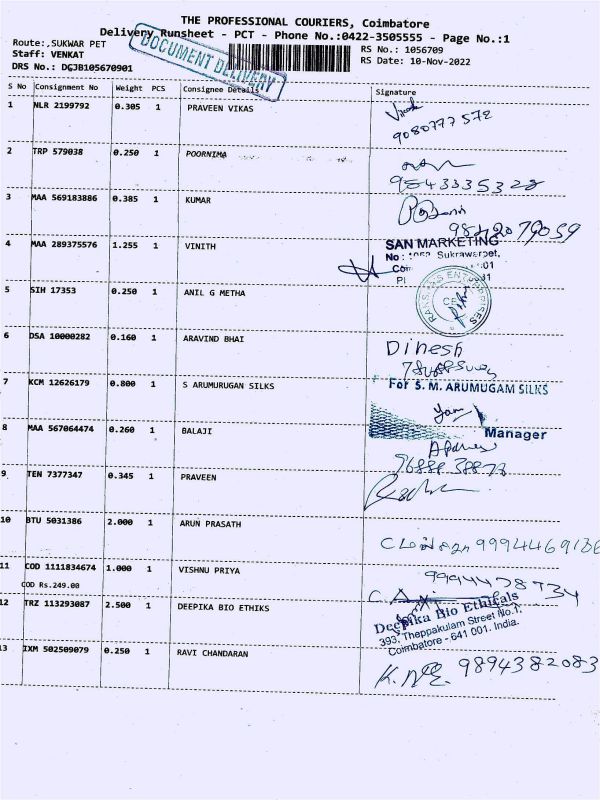 THE PROFESSIONAL COURIERS, Coimbatore
Delivery Runsheet - PCT - Phone No.:0422-3505555 - Page No.:1
DOCUMENT DELIVERY
Route:,SUKWAR PET
Staff: VENKAT
DRS No.: DGJB105670901
RS No.: 1056709
RS Date: 10-Nov-2022
S No Consignment No Weight PCS Consignee Details Signature
1 NLR 2199792 0.305 1 PRAVEEN VIKAS
9080777572
2 TRP 579038 0.250 1 POORNIMA
9543335328
3 MAA 569183886 0.385 1 KUMAR
9842079059
4 MAA 289375576 1.255 1 VINITH
SAN MARKETING
No: Sukrawarpet,
5 SIH 17353 0.250 1 ANIL G METHA
ENTERPRISES
6 DSA 10000282 0.160 1 ARAVIND BHAI
Dinesh
7 KCM 12626179 0.800 1 S ARUMURUGAN SILKS
For S. M. ARUMUGAM SILKS
Manager
8 MAA 567064474 0.260 1 BALAJI
9 TEN 7377347 0.345 1 PRAVEEN
10 BTU 5031386 2.000 1 ARUN PRASATH
9994469136
11 COD 1111834674 1.000 1 VISHNU PRIYA
COD Rs.249.00
12 TRZ 113293087 2.500 1 DEEPIKA BIO ETHIKS
Deepika Bio Ethicals
393, Theppakulam Street No.1,
Coimbatore - 641 001. India.
13 IXM 502509079 0.250 1 RAVI CHANDARAN
9894382083